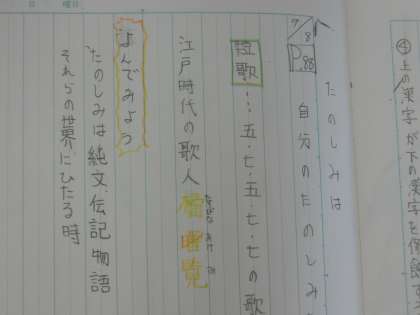 日 曜日
④上の漢字が下の漢字を修飾す
7/8
たのしみは
自分のたのしみ
短歌…五・七・五・七・七の歌
江戸時代の歌人 橘曙覧
よんでみよう
たのしみは純文、伝記物語
それらの世界にひたる時